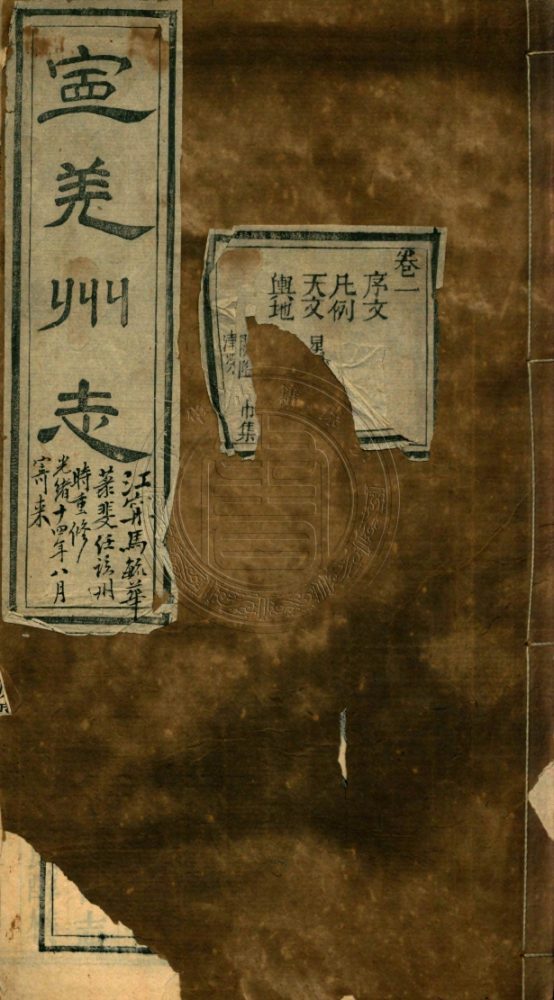 宣羌州志
江寧馬毓華
棻斐任該州
時重修
光緒十四年八月
寄来
卷一
序文
凡例
天文 星
輿地
市集